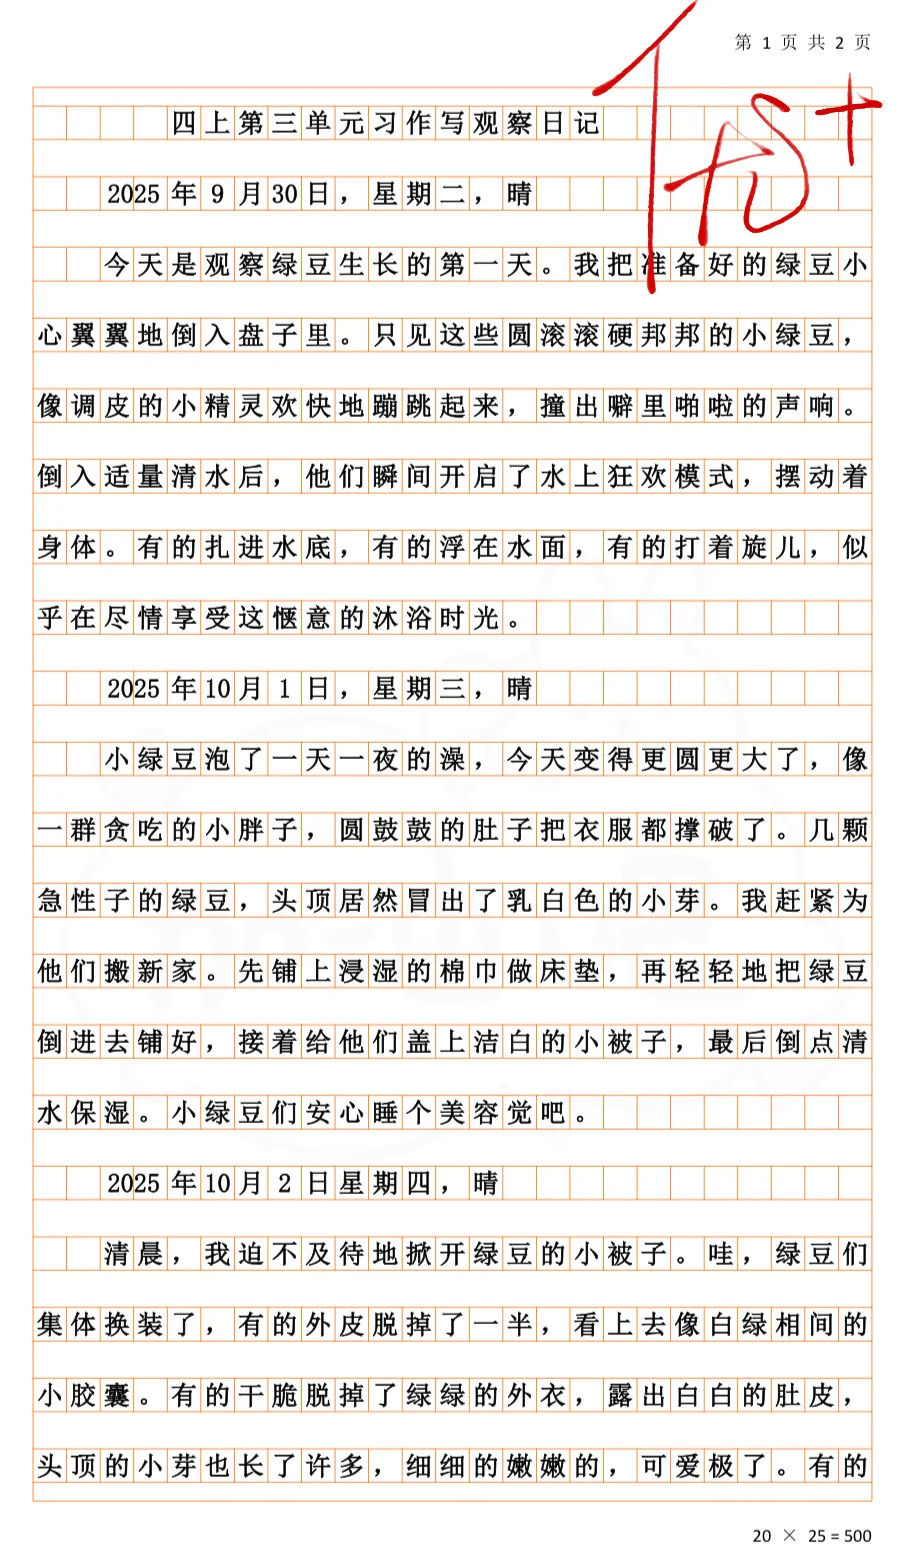 第 1 页 共 2 页
优+
四上第三单元习作写观察日记
2025年9月30日，星期二，晴
今天是观察绿豆生长的第一天。我把准备好的绿豆小
心翼翼地倒入盘子里。只见这些圆滚滚硬邦邦的小绿豆，
像调皮的小精灵欢快地蹦跳起来，撞出噼里啪啦的声响。
倒入适量清水后，他们瞬间开启了水上狂欢模式，摆动着
身体。有的扎进水底，有的浮在水面，有的打着旋儿，似
乎在尽情享受这惬意的沐浴时光。
2025年10月1日，星期三，晴
小绿豆泡了一天一夜的澡，今天变得更圆更大了，像
一群贪吃的小胖子，圆鼓鼓的肚子把衣服都撑破了。几颗
急性子的绿豆，头顶居然冒出了乳白色的小芽。我赶紧为
他们搬新家。先铺上浸湿的棉巾做床垫，再轻轻地把绿豆
倒进去铺好，接着给他们盖上洁白的小被子，最后倒点清
水保湿。小绿豆们安心睡个美容觉吧。
2025年10月2日星期四，晴
清晨，我迫不及待地掀开绿豆的小被子。哇，绿豆们
集体换装了，有的外皮脱掉了一半，看上去像白绿相间的
小胶囊。有的干脆脱掉了绿绿的外衣，露出白白的肚皮，
头顶的小芽也长了许多，细细的嫩嫩的，可爱极了。有的
20 × 25 = 500